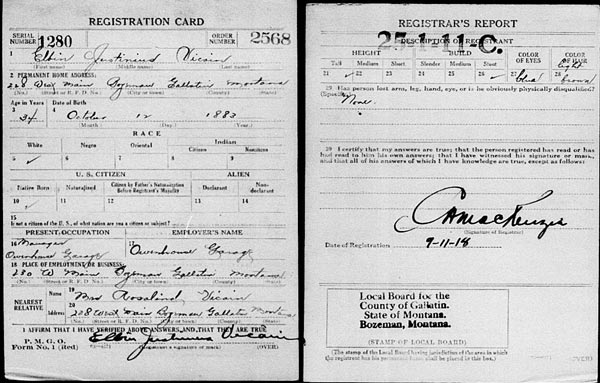 REGISTRATION CARD
SERIAL NUMBER 1280
ORDER NUMBER 2568
1 Elbin Justinus Vicain
(First name) (Middle name) (Last name)
2 PERMANENT HOME ADDRESS:
228 West Main Bozeman Gallatin Montana
(No.) (Street or R. F. D. No.) (City or town) (County) (State)
Age in Years Date of Birth
3 34 4 October 12 1883
(Month) (Day) (Year)
RACE
White Negro Oriental Indian
Citizen Noncitizen
5 ✓ 6 7 8 9
U. S. CITIZEN ALIEN
Native Born Naturalized Citizen by Father's Naturalization Before Registrant's Majority Declarant Non-declarant
10 ✓ 11 12 13 14
15
If not a citizen of the U. S., of what nation are you a citizen or subject?
PRESENT OCCUPATION EMPLOYER'S NAME
16 Manager 17
Owenhouse Garage Owenhouse Garage
18 PLACE OF EMPLOYMENT OR BUSINESS:
230 W Main Bozeman Gallatin Montana
(No.) (Street or R. F. D. No.) (City or town) (County) (State)
NEAREST RELATIVE
Name 19 Mrs Rosalind Vicain
Address 20 228 West Main Bozeman Gallatin Montana
(No.) (Street or R. F. D. No.) (City or town) (County) (State)
I AFFIRM THAT I HAVE VERIFIED ABOVE ANSWERS AND THAT THEY ARE TRUE
P. M. G. O.
Form No. 1 (Red) Elbin Justinus Vicain
(OVER)
REGISTRAR'S REPORT
25-1-11-C.
DESCRIPTION OF REGISTRANT
HEIGHT BUILD COLOR OF EYES COLOR OF HAIR
Tall Medium Short Slender Medium Stout
21 ✓ 22 23 24 25 26 ✓ 27 blue 28 light brown
29 Has person lost arm, leg, hand, eye, or is he obviously physically disqualified?
(Specify) None.
30 I certify that my answers are true; that the person registered has read or has had read to him his own answers; that I have witnessed his signature or mark, and that all of his answers of which I have knowledge are true, except as follows:
MacKenzie
(Signature of Registrar)
Date of Registration 9-11-18
Local Board for the
County of Gallatin.
State of Montana.
Bozeman, Montana.
(STAMP OF LOCAL BOARD)
(The stamp of the Local Board having jurisdiction of the area in which
the registrant has his permanent home shall be placed in this box.)
(OVER)